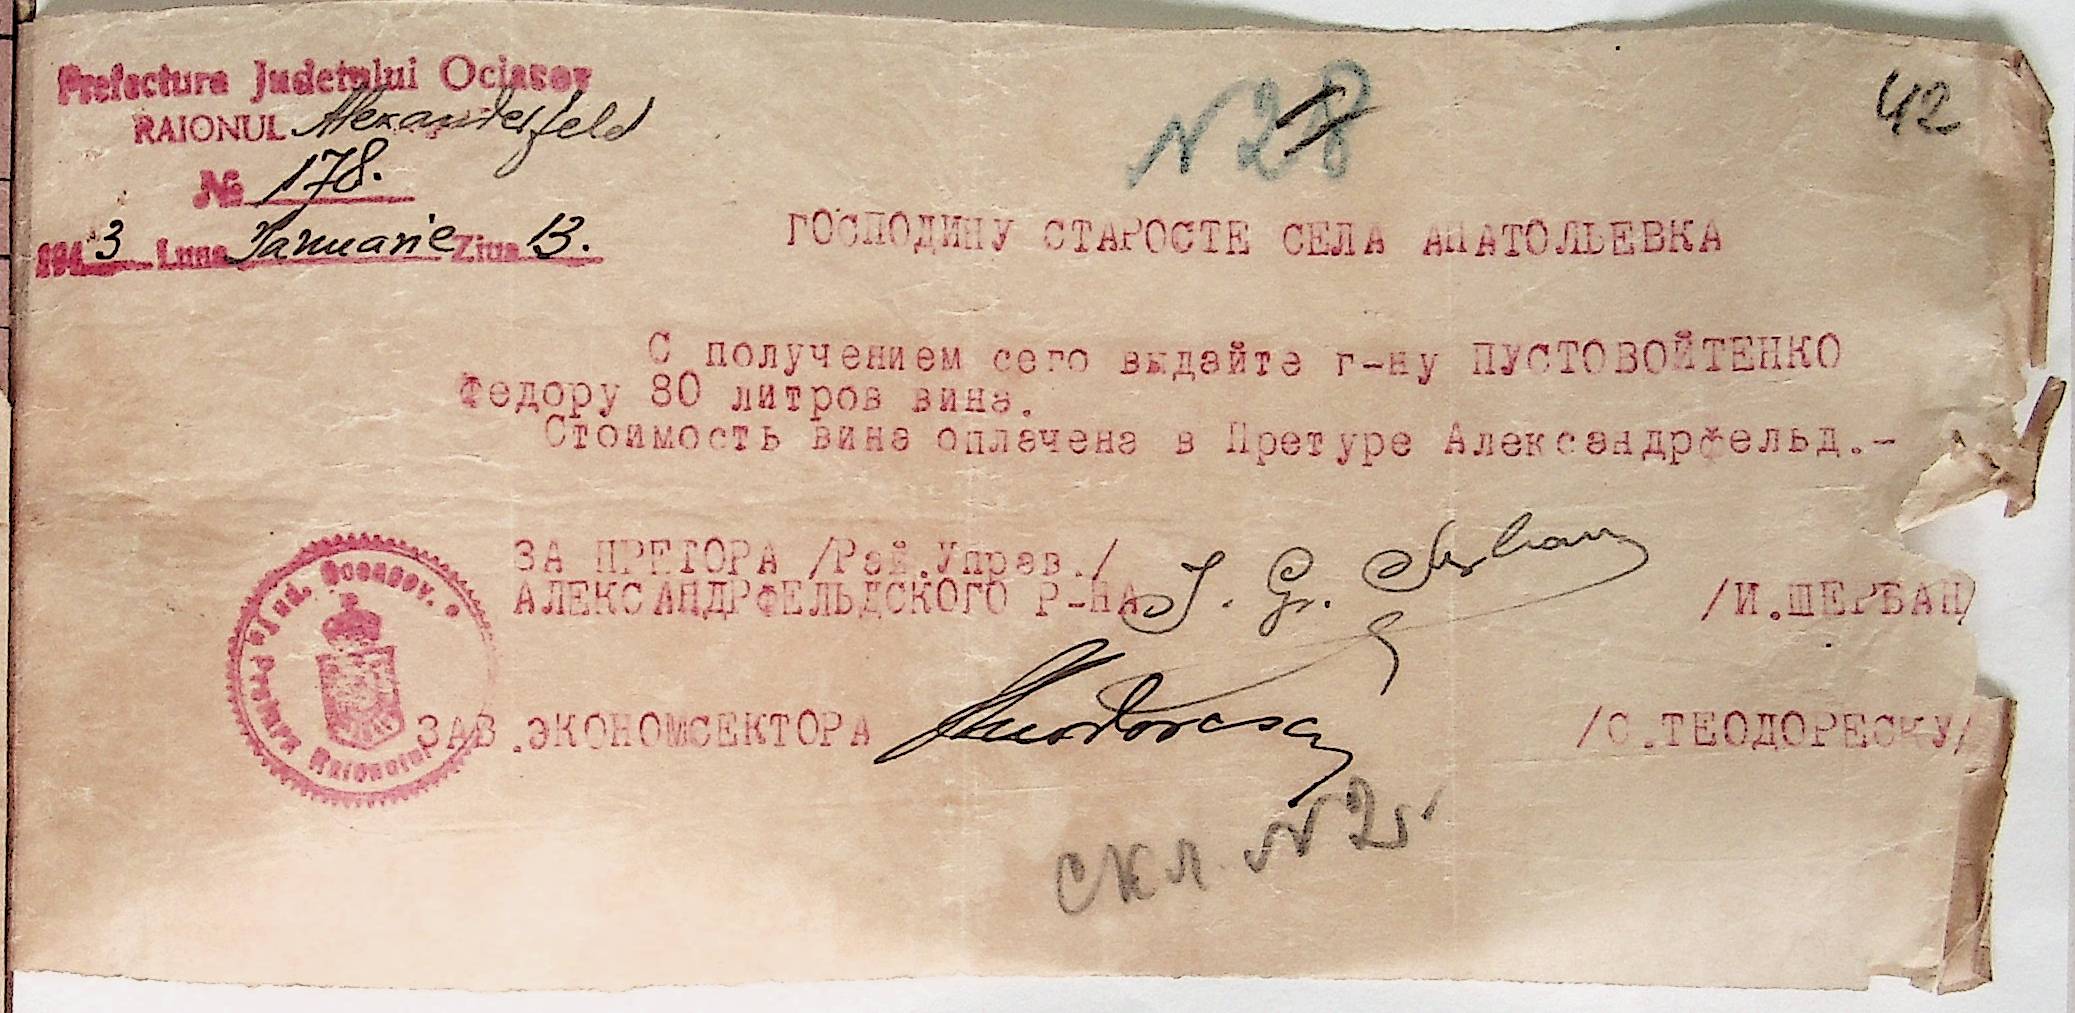 Prefectura Judetului Ociacov
RAIONUL Alexanderfeld
№ 178.
1943 Luna Ianuarie Ziua 13.
N 28
42
ГОСПОДИНУ СТАРОСТЕ СЕЛА АНАТОЛЬЕВКА
С получением сего выдайте г-ну ПУСТОВОЙТЕНКО
Федору 80 литров вина.
Стоимость вина оплачена в Претуре Александрфельд.-
ЗА ПРЕТОРА /Рай.Управ./
АЛЕКСАНДРФЕЛЬДСКОГО Р-НА I. Gr. Șerban /И.ШЕРБАН/
ЗАВ.ЭКОНОМСЕКТОРА Teodorescu /С.ТЕОДОРЕСКУ/
Jud. Oceacov.
Pretura Raionului
скл. N 2